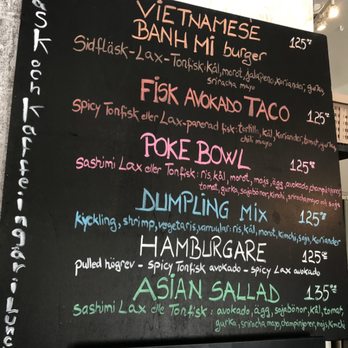 Läsk och Kaffe ingår i Lunc
VIETNAMESE
BANH MI burger 125:-
Sidfläsk - Lax - Tonfisk: kål, morot, jalapeno, koriander, gurka,
sriracha mayo
FISK AVOKADO TACO 125:-
spicy Tonfisk eller Lax - panerad fisk: tortilla, kål, koriander, tomat, gurka,
chili mayo
POKE BOWL 125:-
sashimi Lax eller Tonfisk: ris, kål, morot, majs, ägg, avokado, champinjoner,
tomat, gurka, sojabönor, kimchi, sriracha mayo och soja
DUMPLING MIX 125:-
kyckling, shrimp, vegetaris, ris, kål, morot, kimchi, soja, koriander
HAMBURGARE 125:-
pulled högrev - spicy Tonfisk avokado - spicy Lax avokado
ASIAN SALLAD 135:-
sashimi Lax eller Tonfisk: avokado, ägg, sojabönor, kål, tomat,
gurka, sriracha mayo, champinjoner, majs, kimchi